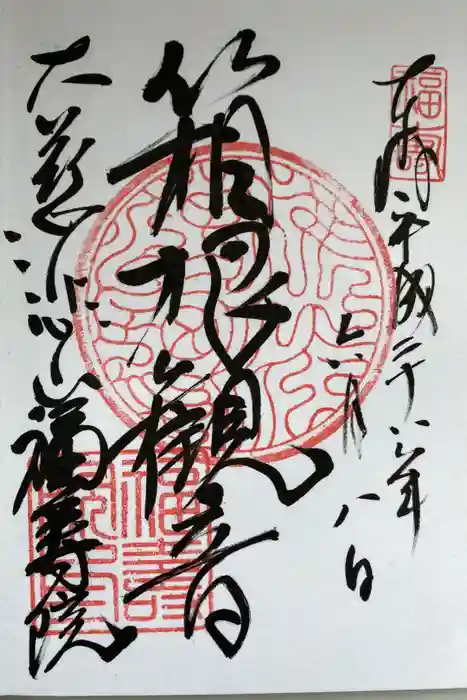 奉拝 平成二十六年
六月八日
箱根観音
大慈悲 福寿院
福寿